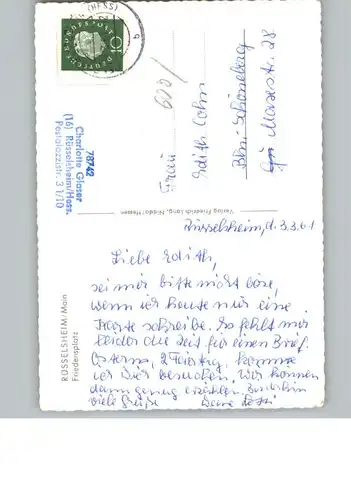 (HESS)
DEUTSCHE BUNDESPOST
10
600/
78742
Charlotte Glaser
(16) Rüsselsheim/Hess.
31/10
Frau
Edith Cohn
Bln.-Schöneberg
28
Verlag Friedrich Lang, Nidda/Hessen
RÜSSELSHEIM/Main
Friedensplatz
Rüsselsheim, d. 3.3.61
Liebe Edith,
sei mir bitte nicht böse,
wenn ich heute nur eine
Karte schreibe. Es fehlt mir
leider die Zeit für einen Brief.
Ostern, 2. Feiertag, komme
ich Dich besuchen. Wir können
dann genug erzählen. Bis dahin
viele Grüße Deine